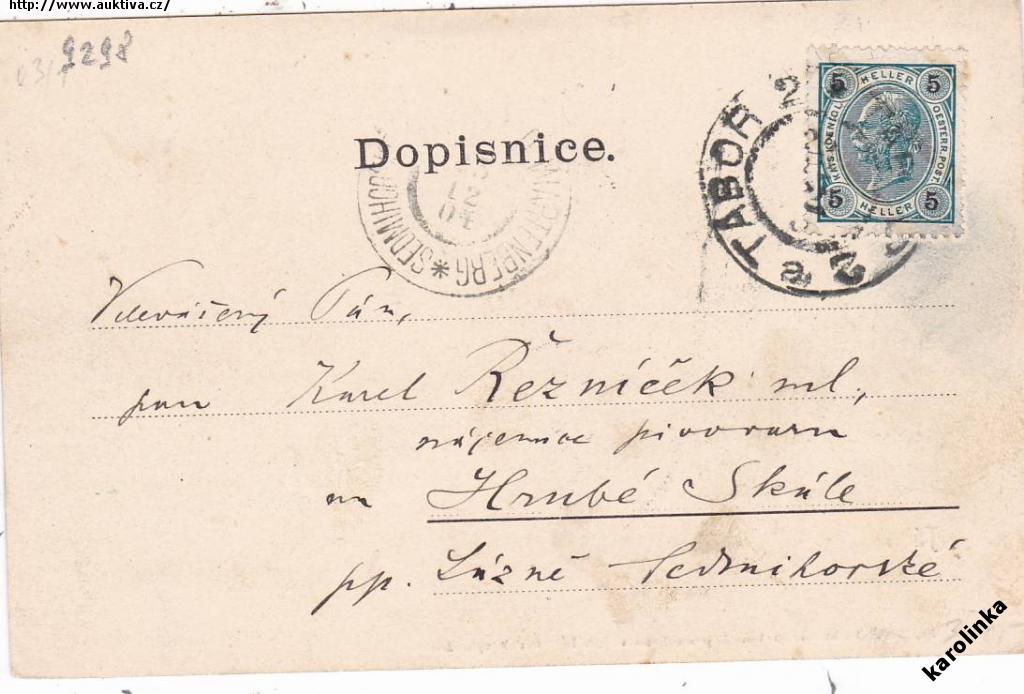 http://www.auktiva.cz/
9298
Dopisnice.
5 HELLER 5
KAIS. KOENIGL. OESTERR. POST.
5 HELLER 5
TÁBOR 2
WARTENBERG * SEDMIHOR
Velevážený Pán,
pan Karel Řezníček ml.,
nájemce pivovaru
na Hrubé Skále
pp. Lázně Sedmihorské
karolinka